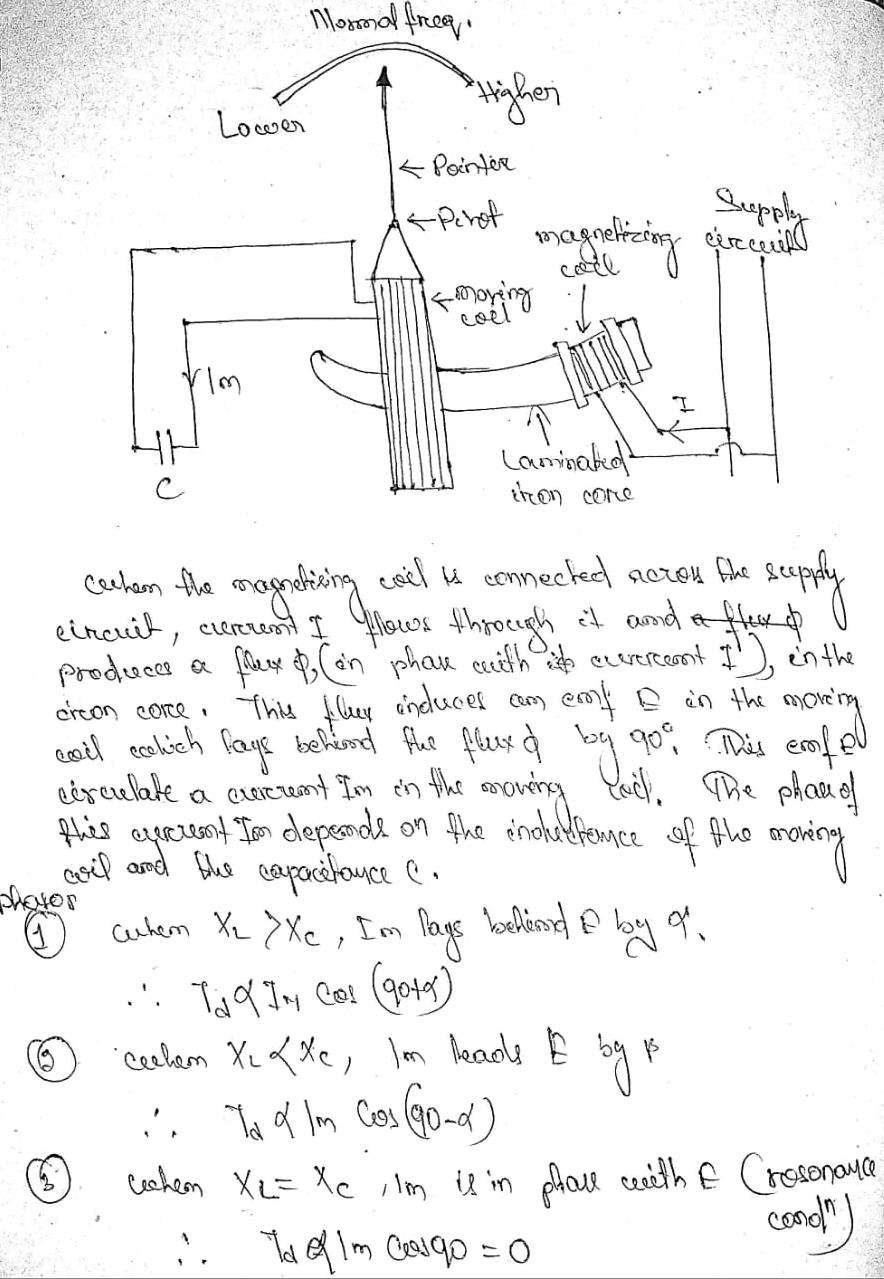 Normal freq.
Lower
Higher
← Pointer
← Pivot
Supply
circuit
magnetizing
coil
← moving
coil
Im
I
C
Laminated
iron core
when the magnetising coil is connected across the supply
circuit, current I flows through it and a flux ϕ
produces a flux ϕ, (in phase with its current I), in the
iron core. This flux induces an emf E in the moving
coil which lags behind the flux ϕ by 90°. This emf E
circulate a current Im in the moving coil. The phase of
this current Im depends on the inductance of the moving
coil and the capacitance C.
phasor
① when XL > Xc, Im lags behind E by α.
∴ Td α IM Cos (90+α)
② when XL < Xc, Im leads E by β
∴ Td α Im Cos (90-α)
③ when XL = Xc, Im is in phase with E (resonance
condn)
∴ Td α Im Cos90 = 0